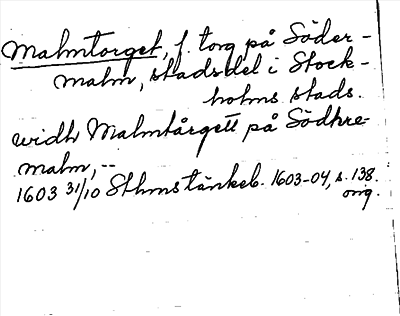 Malmtorget, f. torg på Söder-
malm, stadsdel i Stock-
holms stads.
widh Malmtårgett på Södhre-
malm, --
1603 31/10 Sthms tänkeb. 1603-04, s. 138.
orig.